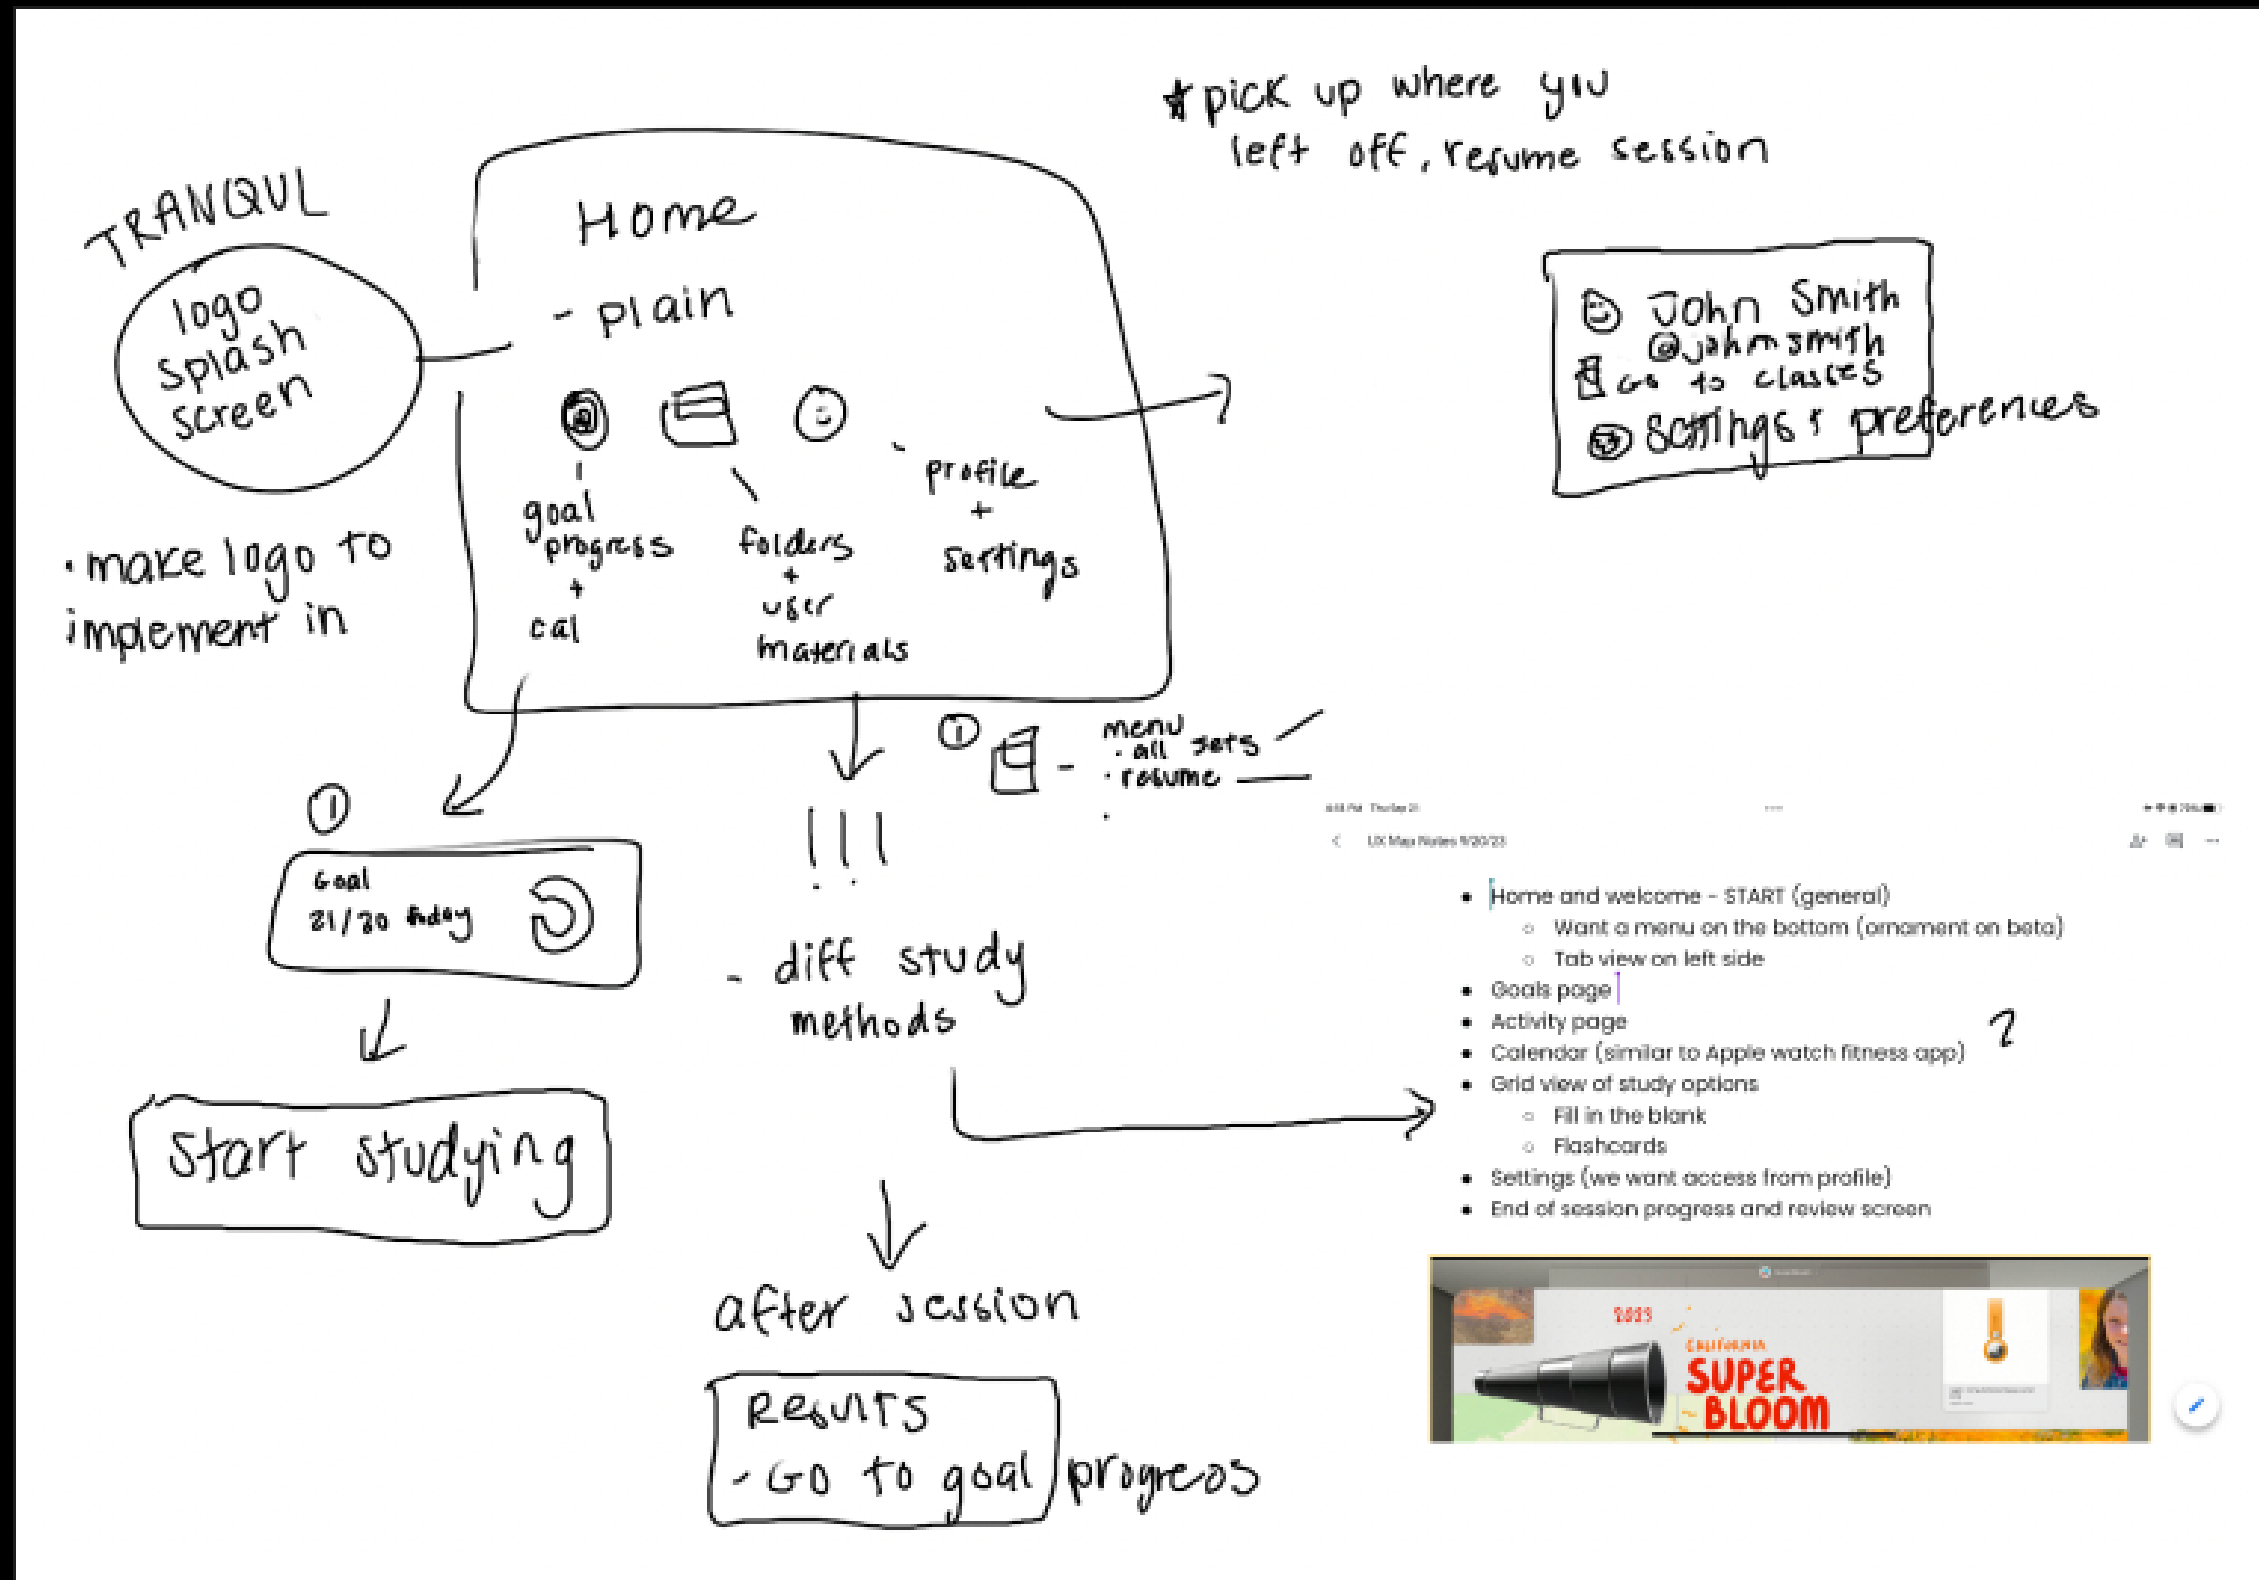 *pick up where you
left off, resume session
TRANQUL
logo
splash
screen
• make logo to
implement in
Home
- plain
goal
progress
+
cal
folders
+
user
materials
profile
+
settings
John Smith
@johnsmith
Go to classes
settings & preferences
1
menu
• all sets
• resume
•
1
Goal
21/30 today
Start studying
!!!
- diff study
methods
after session
Results
- Go to goal progress
UX Map Notes 9/20/23
• Home and welcome - START (general)
○ Want a menu on the bottom (ornament on beta)
○ Tab view on left side
• Goals page
• Activity page
• Calendar (similar to Apple watch fitness app) ?
• Grid view of study options
○ Fill in the blank
○ Flashcards
• Settings (we want access from profile)
• End of session progress and review screen
2023
CALIFORNIA
SUPER
BLOOM